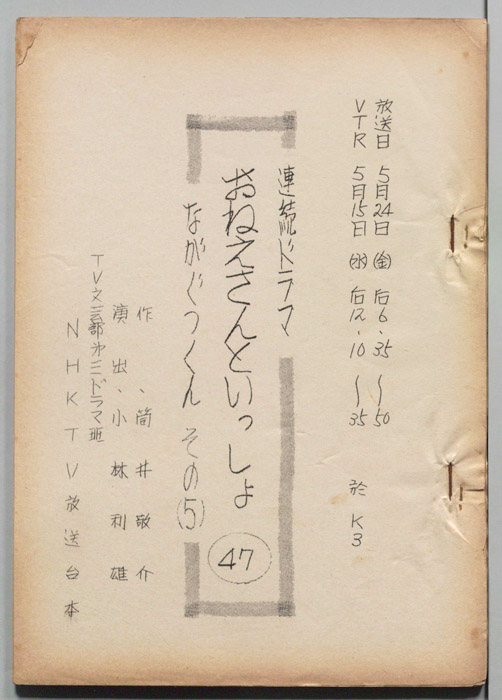 放送日 5月24日 ㊎ 后6.35～50
VTR 5月15日 ㊌ 后12.10～35 於 K3
連続ドラマ
おねえさんといっしょ
47
ながぐつくん その(5)
作、筒井敬介
演出、小林利雄
TV文芸部第三ドラマ班
NHKTV放送台本